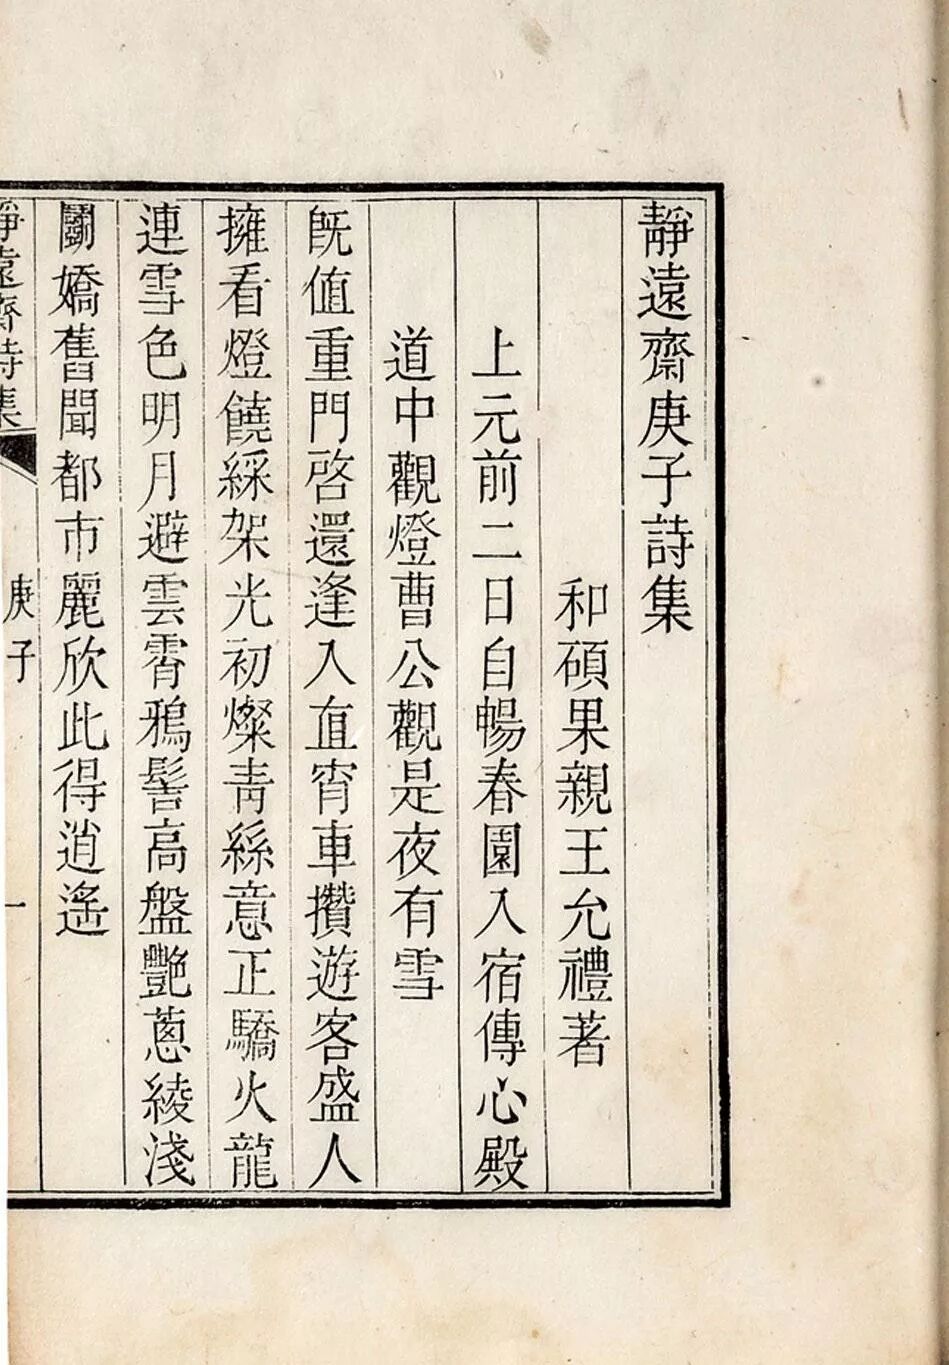 靜遠齋庚子詩集
和碩果親王允禮著
上元前二日自暢春園入宿傳心殿
道中觀燈曹公觀是夜有雪
旣值重門啓還逢入直宵車攢遊客盛人
擁看燈饒綵架光初燦靑絲意正驕火龍
連雪色明月避雲霄鴉髻高盤艷蔥綾淺
鬭嬌舊聞都市麗欣此得逍遙
靜遠齋詩集
庚子
一